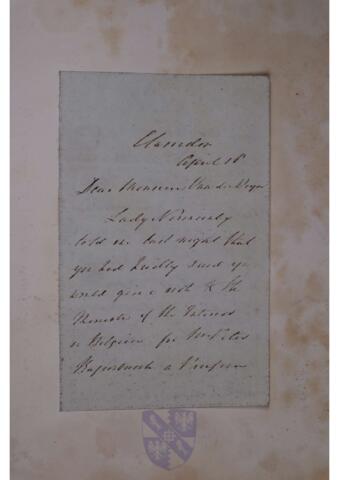 April 18
Dear Monsieur Van de Weyer
Lady
told me last night that
you had kindly said you
would give a note to the
Minister of the Interior
in Belgium for
a